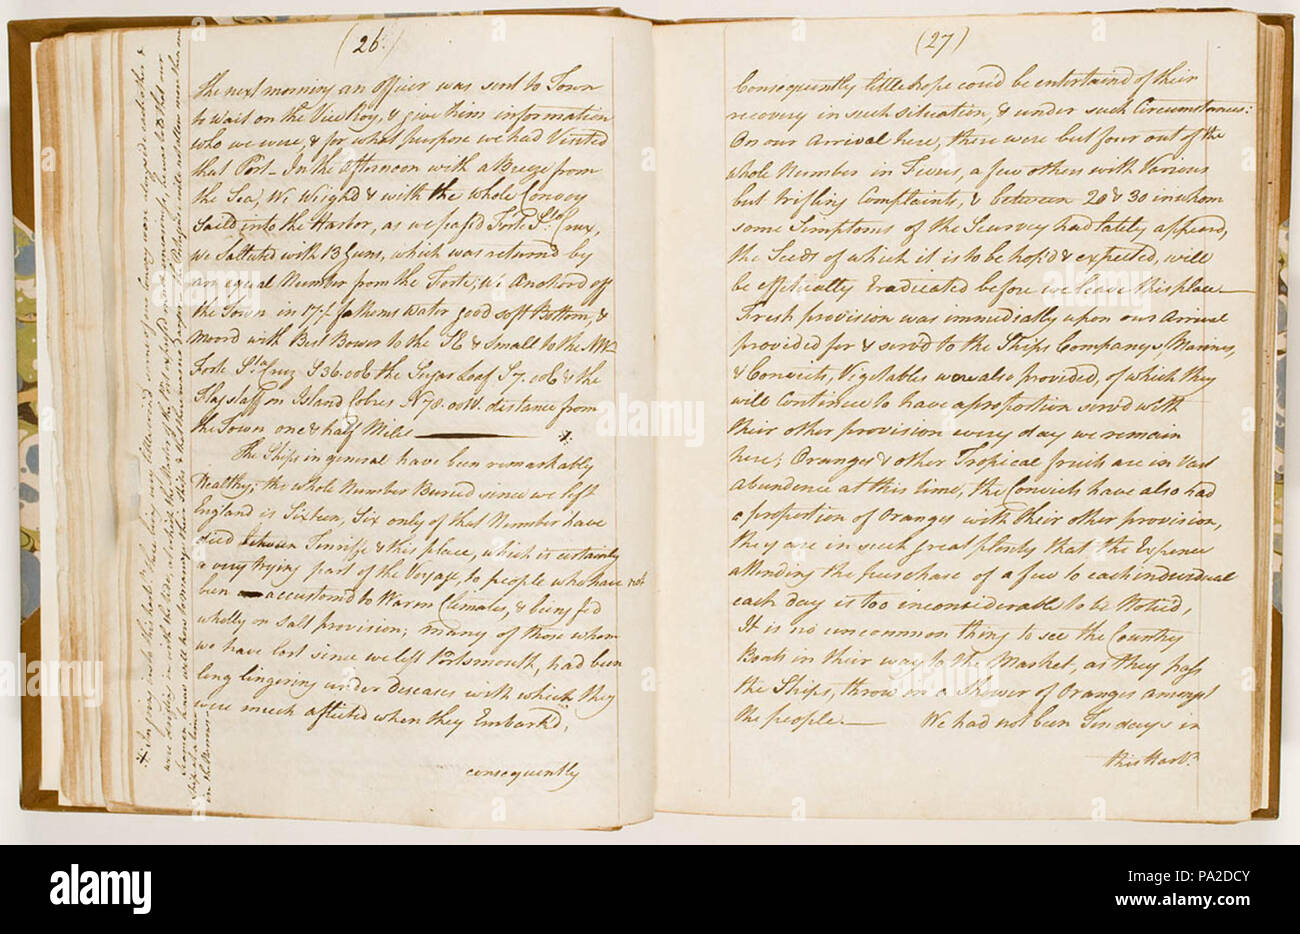 (26.)
the next morning an officer was sent to Town
to wait on the Vice Roy, & give him information
who we were, & for what purpose we had Visited
that Port_ In the afternoon with a Breeze from
the Sea, We Weigh'd & with the whole Convoy
Saild into the Harbor, as we pass'd Forte Sta. Cruz,
we Saluted with 13 Guns, which was returnd by
an equal Number from the Forte; We Anchord off
the Town in 17½ fathoms water good soft Bottom, &
Moor'd with Best Bower to the SE & Small to the NW
Forte Sta. Cruz S36.00E the Sugar Loaf S7.00E & the
Flag staff on Island Cobres N78.00W. distance from
the Town one & half Miles
The Ships in general have been remarkably
Healthy; the whole Number Buried since we left
England is Sixteen, Six only of that Number have
died between Teneriffe & this place, which is certainly
a very trying part of the Voyage, to people who have not
been accustom'd to Warm Climates, & being fed
wholly on Salt provision; many of those whom
we have lost since we left Portsmouth, had been
long lingering under deseases with which they
were much afflicted when they Embark'd,
consequently
(27)
Consequently little hope coud be entertaind of their
recovery in such situation, & under such Circumstances:
On our Arrival here, there were but four out of the
whole Number in Fevers, a few others with Various
but trifling Complaints, & between 20 & 30 in whom
some Simptoms of the Scurvey had lately appeard,
the Seeds of which it is to be hop'd & expected, will
be effectually Eradicated before we leave this place
Fresh provision was immediatly upon our Arrival
provided for & serv'd to the Ships Companys, Marines,
& Convicts, Vegetables were also provided, of which they
will Continue to have a proportion serv'd with
their other provision every day we remain
here; Oranges & other Tropical fruit are in Vast
abundence at this time, the Convicts have also had
a proportion of Oranges with their other provision,
they are in such great plenty that the Expence
attending the purchase of a few to each individual
each day is too inconsiderable to be Noticd,
It is no uncommon thing to see the Country
Boats in their way to the Market, as they pass
the Ships, throw in a Shower of Oranges amongst
the people. We had not been Ten days in
this Harbr.
alamy
Image ID: PA2DCY
www.alamy.com